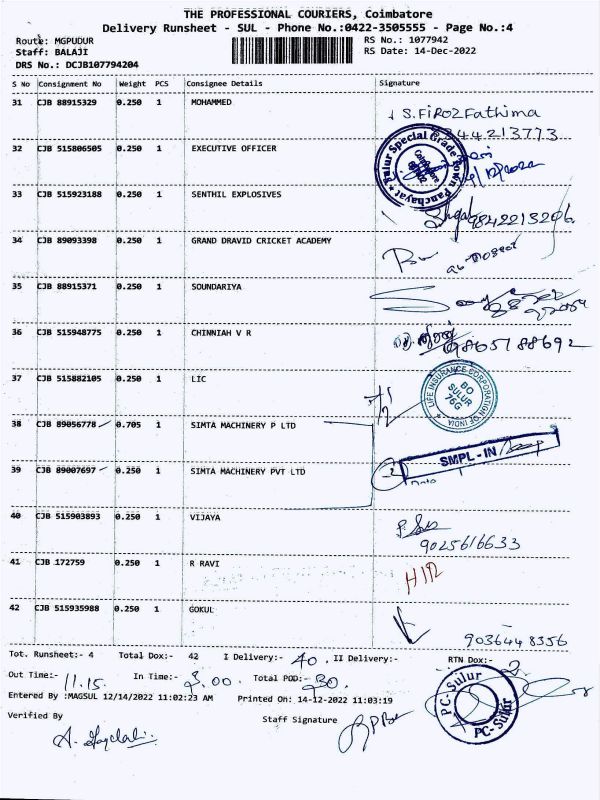 THE PROFESSIONAL COURIERS, Coimbatore
Delivery Runsheet - SUL - Phone No.:0422-3505555 - Page No.:4
Route: MGPUDUR RS No.: 1077942
Staff: BALAJI RS Date: 14-Dec-2022
DRS No.: DCJB107794204
S No Consignment No Weight PCS Consignee Details Signature
31 CJB 88915329 0.250 1 MOHAMMED S. FIROZ Fathima
44213773
32 CJB 515806505 0.250 1 EXECUTIVE OFFICER Sulur Special Grade Town Panchayat
33 CJB 515923188 0.250 1 SENTHIL EXPLOSIVES 9842213206
34 CJB 89093398 0.250 1 GRAND DRAVID CRICKET ACADEMY
35 CJB 88915371 0.250 1 SOUNDARIYA
36 CJB 515948775 0.250 1 CHINNIAH V R 9865788692
37 CJB 515882105 0.250 1 LIC LIFE INSURANCE CORPORATION OF INDIA
BO
SULUR
76G
38 CJB 89056778 0.705 1 SIMTA MACHINERY P LTD
SMPL-IN
39 CJB 89007697 0.250 1 SIMTA MACHINERY PVT LTD 2
40 CJB 515903893 0.250 1 VIJAYA
9025616633
41 CJB 172759 0.250 1 R RAVI
42 CJB 515935988 0.250 1 GOKUL
9036448356
Tot. Runsheet:- 4 Total Dox:- 42 I Delivery:- 40. II Delivery:- RTN Dox:- 2
Out Time:- 11.15. In Time:- 3.00. Total POD:- 30.
PC-Sulur
PC-Sulur
Entered By :MAGSUL 12/14/2022 11:02:23 AM Printed On: 14-12-2022 11:03:19
Verified By Staff Signature